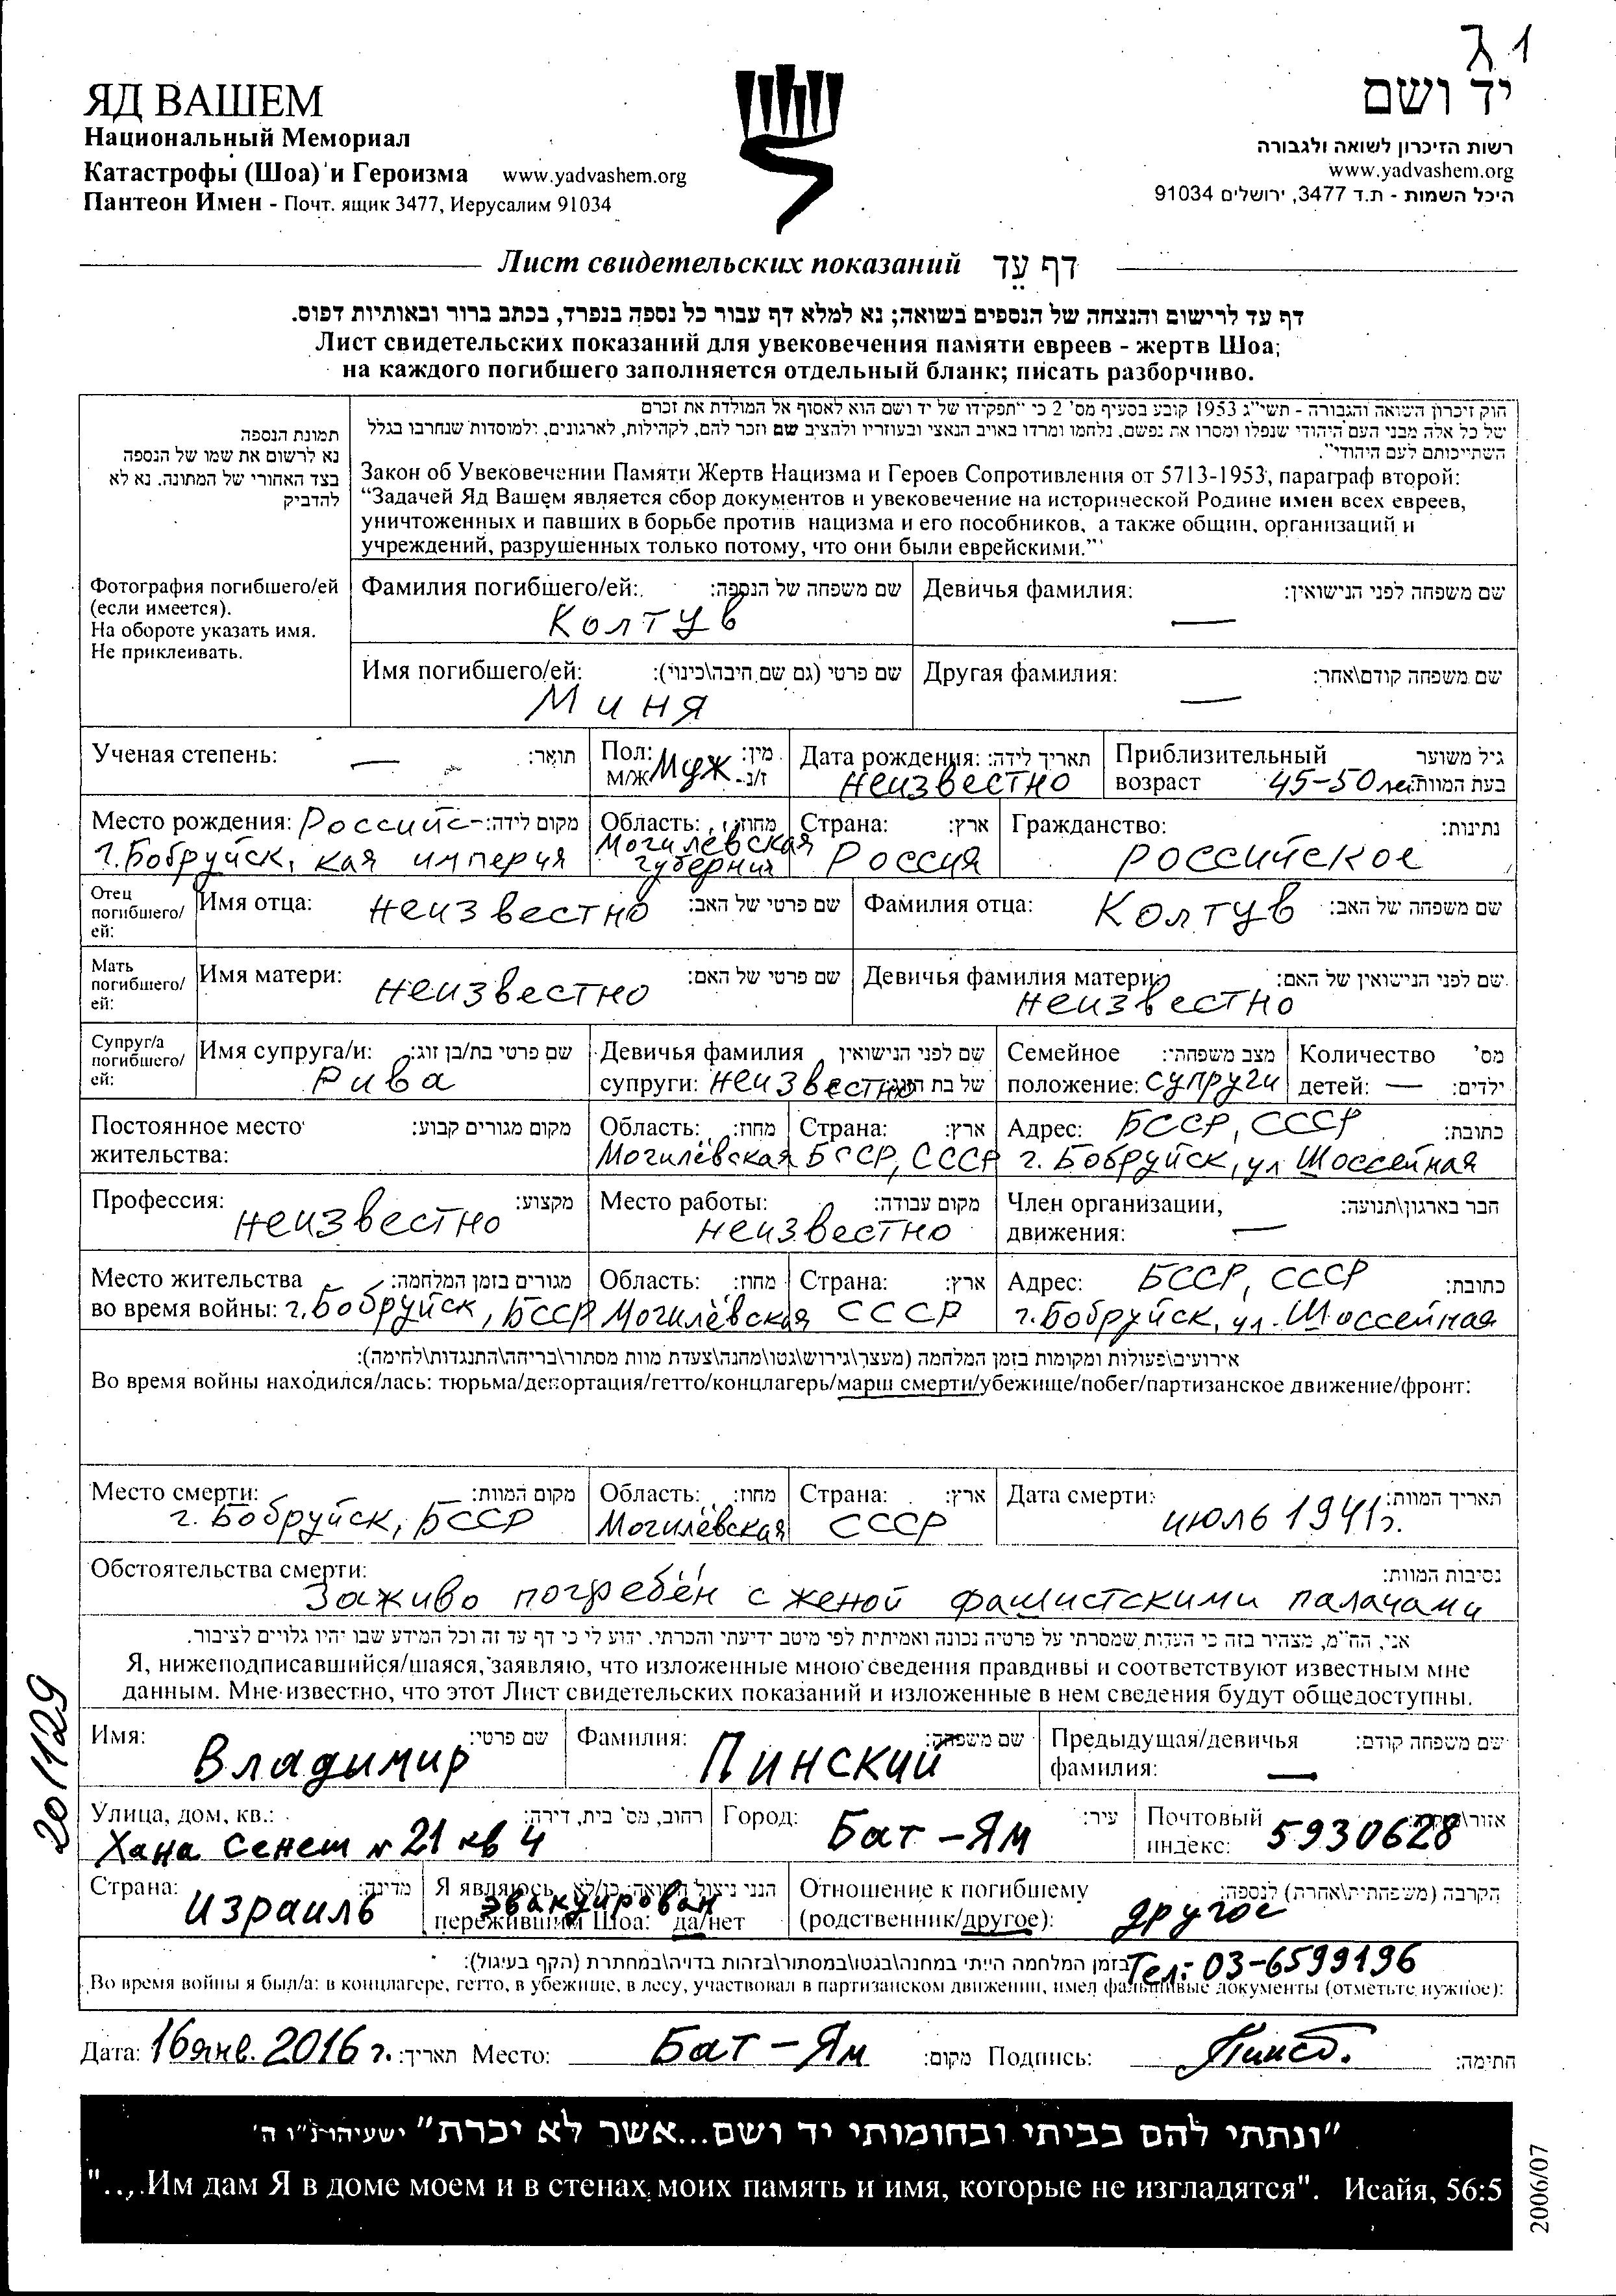 λ 1
ЯД ВАШЕМ
Национальный Мемориал
Катастрофы (Шоа) и Героизма www.yadvashem.org
Пантеон Имен - Почт. ящик 3477, Иерусалим 91034
יד ושם
רשות הזיכרון לשואה ולגבורה
www.yadvashem.org
היכל השמות - ת.ד 3477, ירושלים 91034
Лист свидетельских показаний דף עֵד
דף עד לרישום והנצחה של הנספים בשואה; נא למלא דף עבור כל נספה בנפרד, בכתב ברור ובאותיות דפוס.
Лист свидетельских показаний для увековечения памяти евреев - жертв Шоа;
на каждого погибшего заполняется отдельный бланк; писать разборчиво.
תמונת הנספה
נא לרשום את שמו של הנספה
בצד האחורי של המתונה. נא לא
להדביק
Фотография погибшего/ей
(если имеется).
На обороте указать имя.
Не приклеивать.
חוק זיכרון השואה והגבורה - תשי"ג 1953 קובע בסעיף מס' 2 כי "תפקידו של יד ושם הוא לאסוף אל המולדת את זכרם
של כל אלה מבני העם היהודי שנפלו ומסרו את נפשם, נלחמו ומרדו באויב הנאצי ובעוזריו ולהציב שם וזכר להם, לקהילות, לארגונים, ולמוסדות שנחרבו בגלל
השתייכותם לעם היהודי".
Закон об Увековечении Памяти Жертв Нацизма и Героев Сопротивления от 5713-1953, параграф второй:
“Задачей Яд Вашем является сбор документов и увековечение на исторической Родине имен всех евреев,
уничтоженных и павших в борьбе против нацизма и его пособников, а также общин, организаций и
учреждений, разрушенных только потому, что они были еврейскими.”
Фамилия погибшего/ей: שם משפחה של הנספה: Девичья фамилия: שם משפחה לפני הנישואין:
Колтув —
Имя погибшего/ей: שם פרטי (גם שם חיבה\כינוי): Другая фамилия: שם משפחה קודם\אחר:
Миня —
Ученая степень: — תואר: Пол: מין: Дата рождения: תאריך לידה: Приблизительный גיל משוער
м/ж Муж ז/נ- неизвестно возраст 45-50 лет בעת המוות:
Место рождения: Российс- מקום לידה: Область: מחוז: Страна: ארץ: Гражданство: נתינות:
г. Бобруйск, кая империя Могилёвская губерния Россия российское
Отец погибшего/ей: Имя отца: неизвестно שם פרטי של האב: Фамилия отца: Колтув שם משפחה של האב:
Мать погибшего/ей: Имя матери: неизвестно שם פרטי של האם: Девичья фамилия матери: неизвестно שם לפני הנישואין של האם:
Супруг/а погибшего/ей: Имя супруга/и: שם פרטי בת/בן זוג: Девичья фамилия שם לפני הנישואין Семейное מצב משפחתי: Количество מס'
Рива супруги: неизвестно של בת הזוג: положение: супруги детей: — ילדים:
Постоянное место מקום מגורים קבוע: Область: מחוז: Страна: ארץ: Адрес: БССР, СССР כתובת:
жительства: Могилёвская БССР, СССР г. Бобруйск, ул Шоссейная
Профессия: מקצוע: Место работы: מקום עבודה: Член организации, חבר בארגון\תנועה:
неизвестно неизвестно движения: —
Место жительства מגורים בזמן המלחמה: Область: מחוז: Страна: ארץ: Адрес: БССР, СССР כתובת:
во время войны: г. Бобруйск, БССР Могилёвская СССР г. Бобруйск, ул. Шоссейная
אירועים\פעולות ומקומות בזמן המלחמה (מעצר\גירוש\גטו\מחנה\צעדת מוות מסתור\בריחה\התנגדות\לחימה):
Во время войны находился/лась: тюрьма/депортация/гетто/концлагерь/марш смерти/убежище/побег/партизанское движение/фронт:
Место смерти: מקום המוות: Область: מחוז: Страна: ארץ: Дата смерти: תאריך המוות:
г. Бобруйск, БССР Могилёвская СССР июль 1941г.
Обстоятельства смерти: נסיבות המוות:
Заживо погребён с женой фашистскими палачами
אני, הח"מ, מצהיר בזה כי העדות שמסרתי על פרטיה נכונה ואמיתית לפי מיטב ידיעתי והכרתי. ידוע לי כי דף עד זה וכל המידע שבו יהיו גלויים לציבור.
Я, нижеподписавшийся/шаяся, заявляю, что изложенные мною сведения правдивы и соответствуют известным мне
данным. Мне известно, что этот Лист свидетельских показаний и изложенные в нем сведения будут общедоступны.
Имя: שם פרטי: Фамилия: שם משפחה: Предыдущая/девичья שם משפחה קודם:
Владимир Пинский фамилия: —
Улица, дом, кв.: רחוב, מס' בית, דירה: Город: עיר: Почтовый
Хана Сенеш № 21 кв 4 Бат-Ям индекс: 5930628
Страна: מדינה: Я являюсь הנני ניצול השואה: כן/לא Отношение к погибшему הקרבה (משפחתית\אחרת) לנספה:
Израиль эвакуирован пережившим Шоа: да/нет (родственник/другое): другое
בזמן המלחמה הייתי במחנה\בגטו\במסתור\בזהות בדויה\במחתרת (הקף בעיגול): Тел: 03-6599196
Во время войны я был/а: в концлагере, гетто, в убежище, в лесу, участвовал в партизанском движении, имел фальшивые документы (отметьте нужное):
Дата: 16 янв. 2016 г. תאריך: Место: Бат-Ям מקום: Подпись: חתימה:
"ונתתי להם בביתי ובחומותי יד ושם...אשר לא יכרת" ישעיהו נ"ו ה'
"...Им дам Я в доме моем и в стенах моих память и имя, которые не изгладятся". Исайя, 56:5
2011129
2006/07